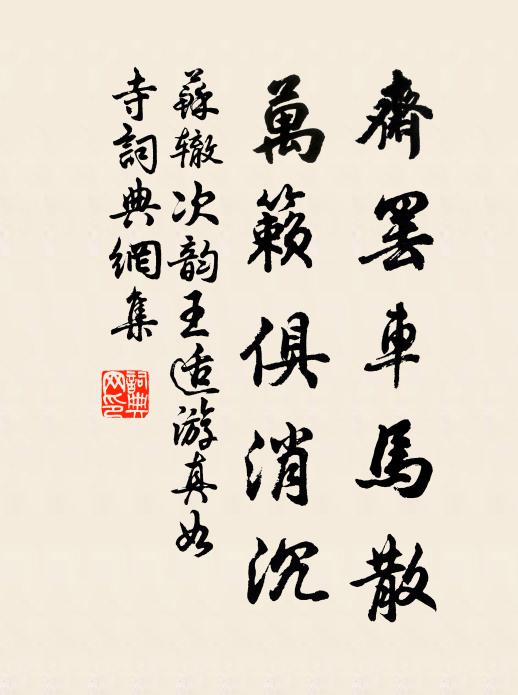 齋罷車馬散
萬籟俱消沉
蘇辙次韵王适游真如
寺詞典網集
詞典网印